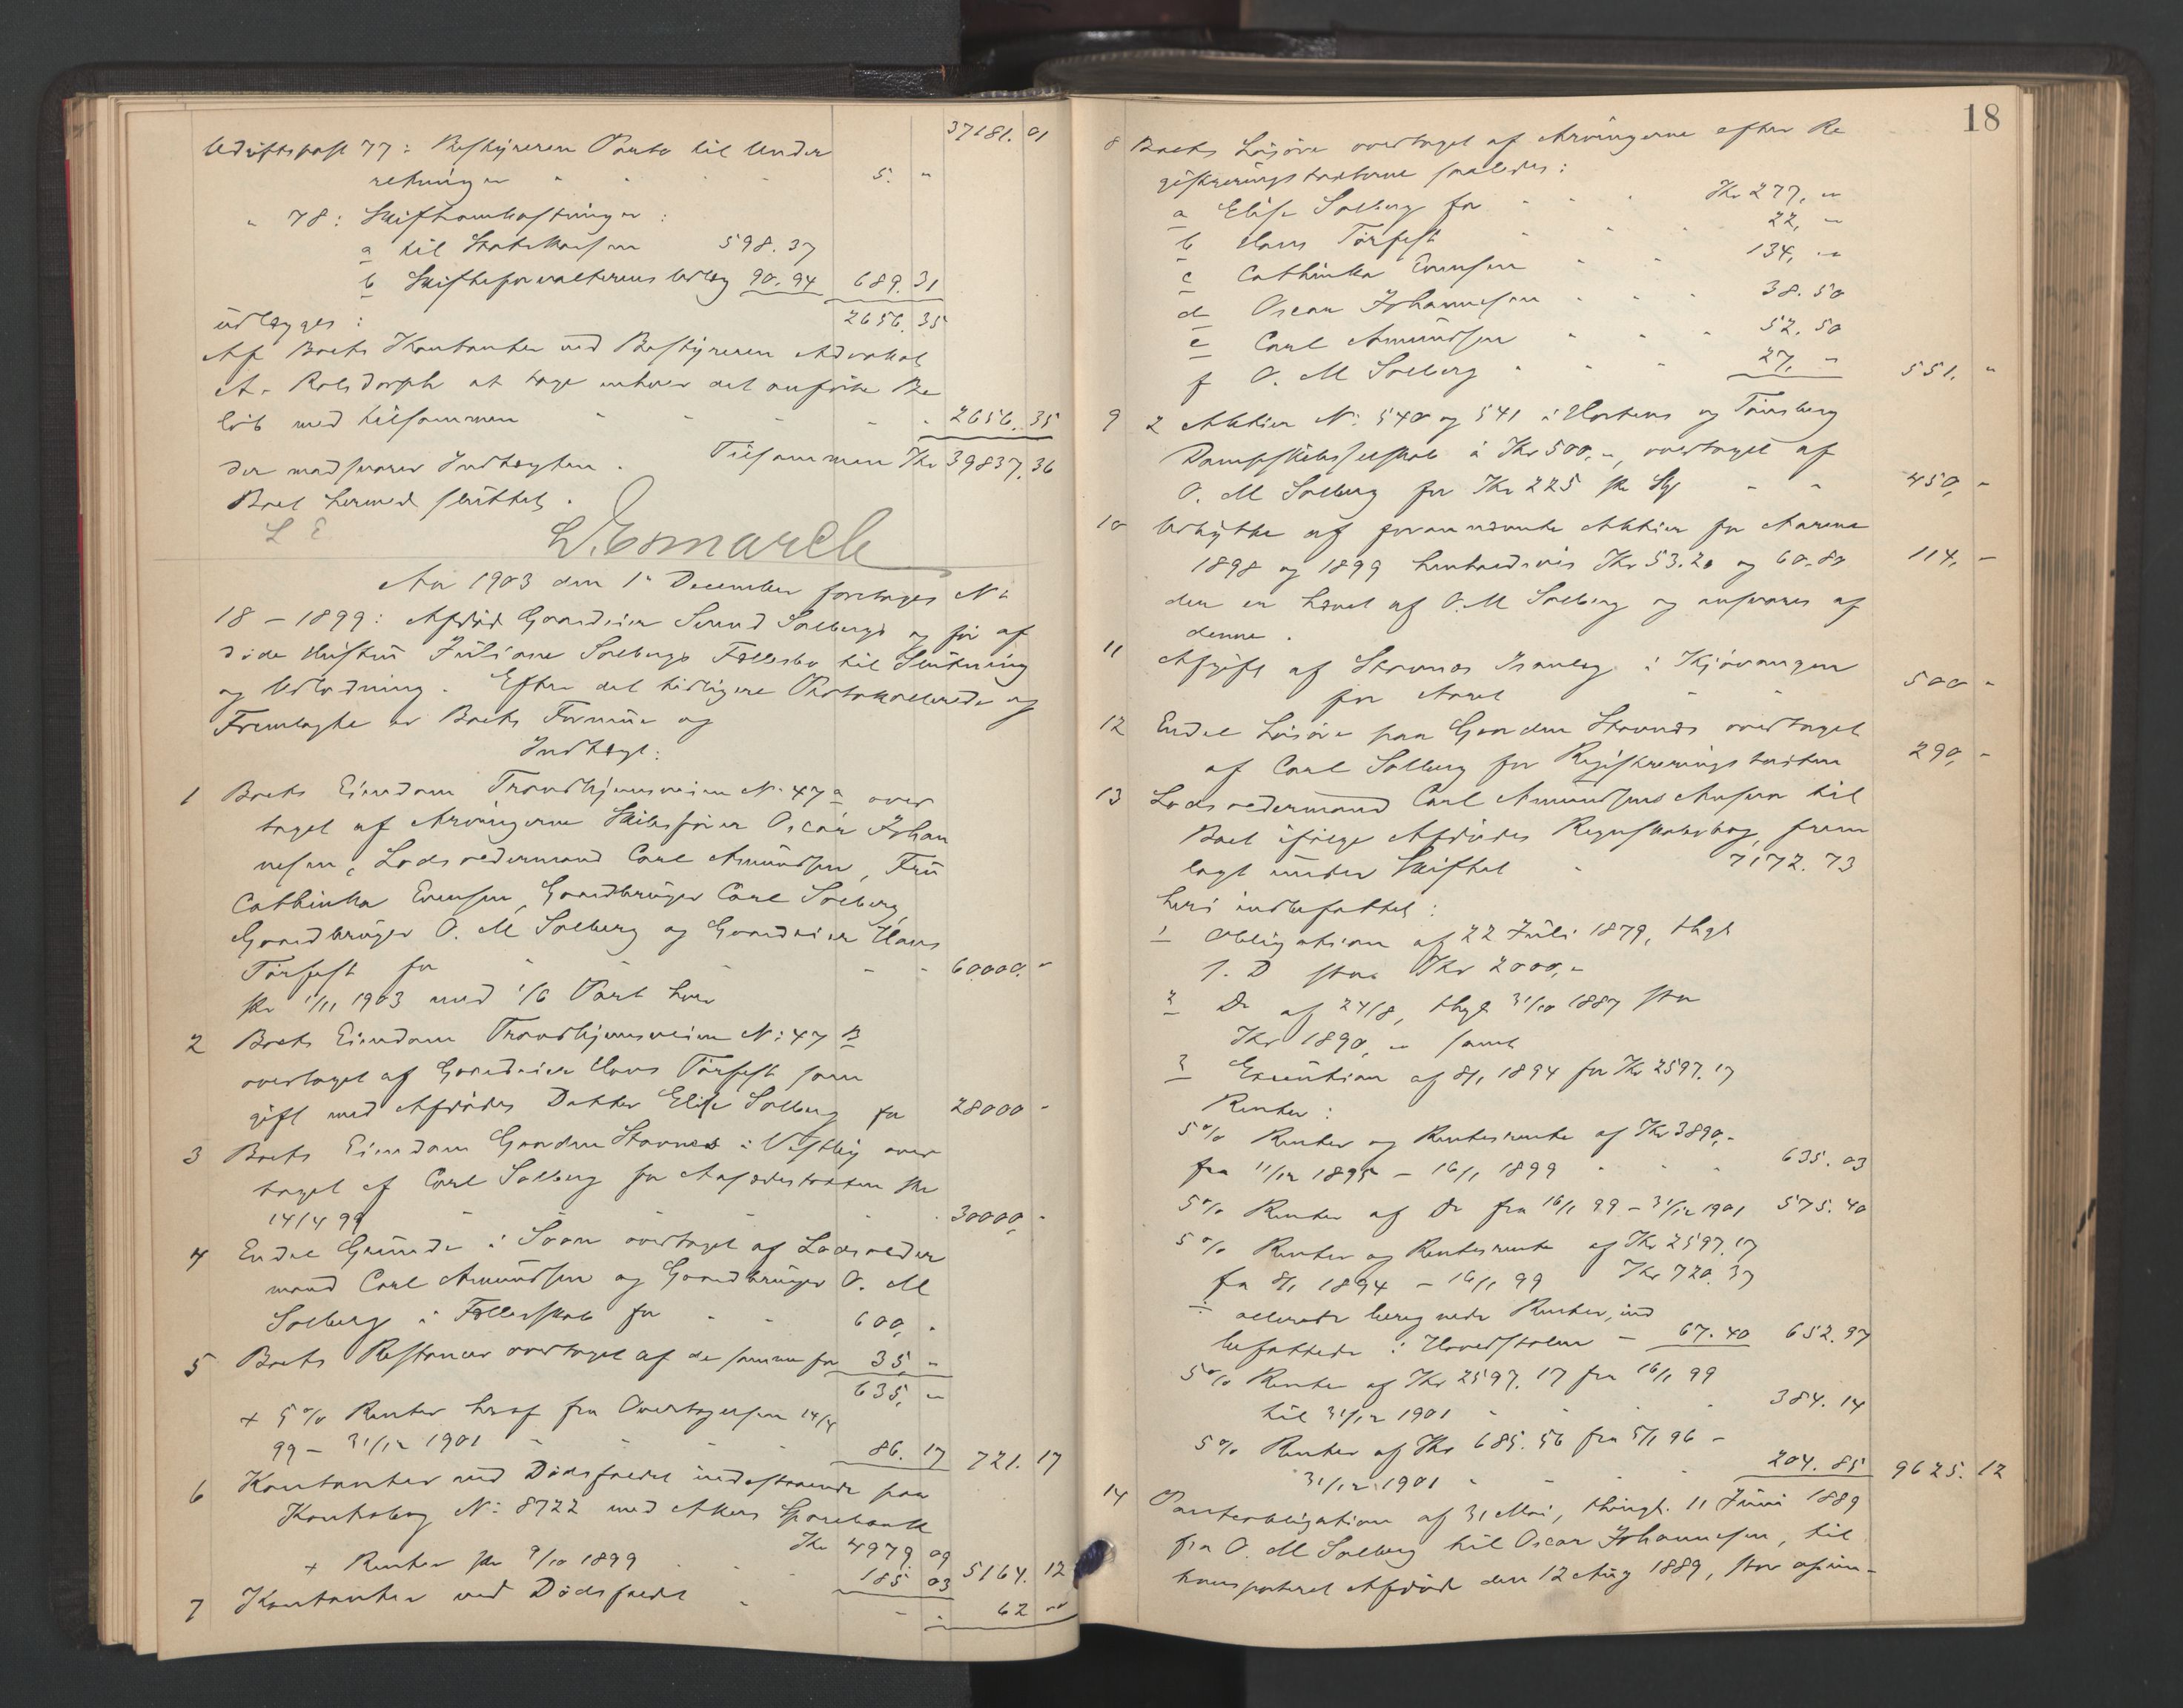 37181. 01
Udgiftspost 77: Bestyreren Porto til Under
retninger " " " " 5. "
" 78: Skifteomkostninger:
a til Statskassen 598. 37
b Skifteforvalterens Udlæg 90. 94 689. 31
2656. 35
udlægges:
Af Boets Kontanter ved Bestyreren Advokat
A. Rolsdorph at tage enhver det anførte Be
løb med tilsammen " " " " 2656. 35
Tilsammen Kr 39837. 36
der modsvarer Indtægten.
Boet hermed sluttet.
L E
L. Esmarch
Aar 1903 den 1. December foretoges No
18 – 1899: Afdød Gaardeier Svend Solbergs og før af
døde Hustru Juliane Solbergs Fællesbo til Slutning
og Udlodning. Efter det tidligere Protokollerede og
Fremlagte er Boets Formue og
Indtægt:
1 Boets Eiendom Trondhjemsveien No 47 a over
taget af Arvingerne Skibsfører Oscar Johan
nesen, Lodsoldermand Carl Amundsen, Fru
Cathinka Evensen, Gaardbruger Carl Solberg,
Gaardbruger O. M Solberg og Gaardeier Hans
Torfest for " " " " " 60000. "
pr 1/11 1903 med 1/6 Part hver
2 Boets Eiendom Trondhjemsveien No: 47 B
overtaget af Gaardeier Hans Torfest som
gift med Afdødes Datter Elise Solberg for 28000 "
3 Boets Eiendom Gaarden Stavnes i Vestby over
taget af Carl Solberg for Aasædestaxten pr
14/4 99 " " " " 30000, "
4 Endel Grunde i Soon overtaget af Lodsolder
mand Carl Amundsen og Gaardbruger O. M
Solberg i Fællesskab for " " 600, "
5 Boets Restancer overtaget af de samme for 35, "
635, "
+ 5 % Renter heraf fra Overtagelsen 14/4
99 – 31/12 1901 " " " " 86. 17 721. 17
6 Kontanter ved Dødsfaldet indestaaende paa
Kontrabog No: 8722 med Akers Sparebank
Kr 4979. 09
+ Renter pr 9/10 1899 " " 185 03 5164. 12
7 Kontanter ved Dødsfaldet " " " 62 "
18
8 Boets Løsøre overtaget af Arvingerne efter Re
gistreringstaxterne saaledes:
a Elise Solberg for " " " Kr 277, "
b Hans Torfest " " " 22, "
c Cathinka Evensen " " 134, "
d Oscar Johannesen " " " 38. 50
e Carl Amundsen " " " 52. 50
f O. M Solberg " " " 27, " 551. "
9 2 Aktier No: 540 og 541 i Hortens og Tønsberg
Dampskibsselskab à Kr 500, ", overtaget af
O. M Solberg for Kr 225 pr Stk " " 450, "
10 Udbytte af forannævnte Aktier for Aarene
1898 og 1899 henholdsvis Kr 53. 20 og 60. 80 114, –
der er hævet af O. M Solberg og ansvares af
denne.
11 Afgift af Stavnes Isanlæg i Kjøvangen
for Aaret " " 500 "
12 Endel Løsøre paa Gaarden Stavnes overtaget
af Carl Solberg for Registreringstaxten 290, "
13 Lodsoldermand Carl Amundsens Ansvar til
Boet ifølge Afdødes Regnskabsbog, frem
lagt under Skiftet " 7172. 73
heri indbefattet:
1 Obligation af 22 Juli 1879, thgl
s. D stor Kr 2000, "
2 Do af 24/8, thgl 31/10 1887 stor
Kr 1890, " samt
3 Execution af 8/1 1894 for Kr 2597. 17
Renter:
5 % Renter og Rentesrente af Kr 3890, "
fra 11/12 1895 – 16/1 1899 " " " 635. 03
5 % Renter af Do fra 16/1 99 – 31/12 1901 575. 40
5 % Renter og Rentesrente af Kr 2597. 17
fra 8/1 1894 – 16/1 99 Kr 720. 37
÷ allerede beregnede Renter, ind
befattede i Hovedstolen – 67. 40 652. 97
5 % Rente af Kr 2597. 17 fra 16/1 99
til 31/12 1901 " " " " 384. 14
5 % Renter af Kr 685. 56 fra 5/1 96 –
31/12 1901 " " " " 204. 85 9625. 12
14 Panteobligation af 31 Mai, thingl. 11 Juni 1889
fra O. M Solberg til Oscar Johannesen, til
transporteret Afdøde den 12 Aug 1889, stor opin-